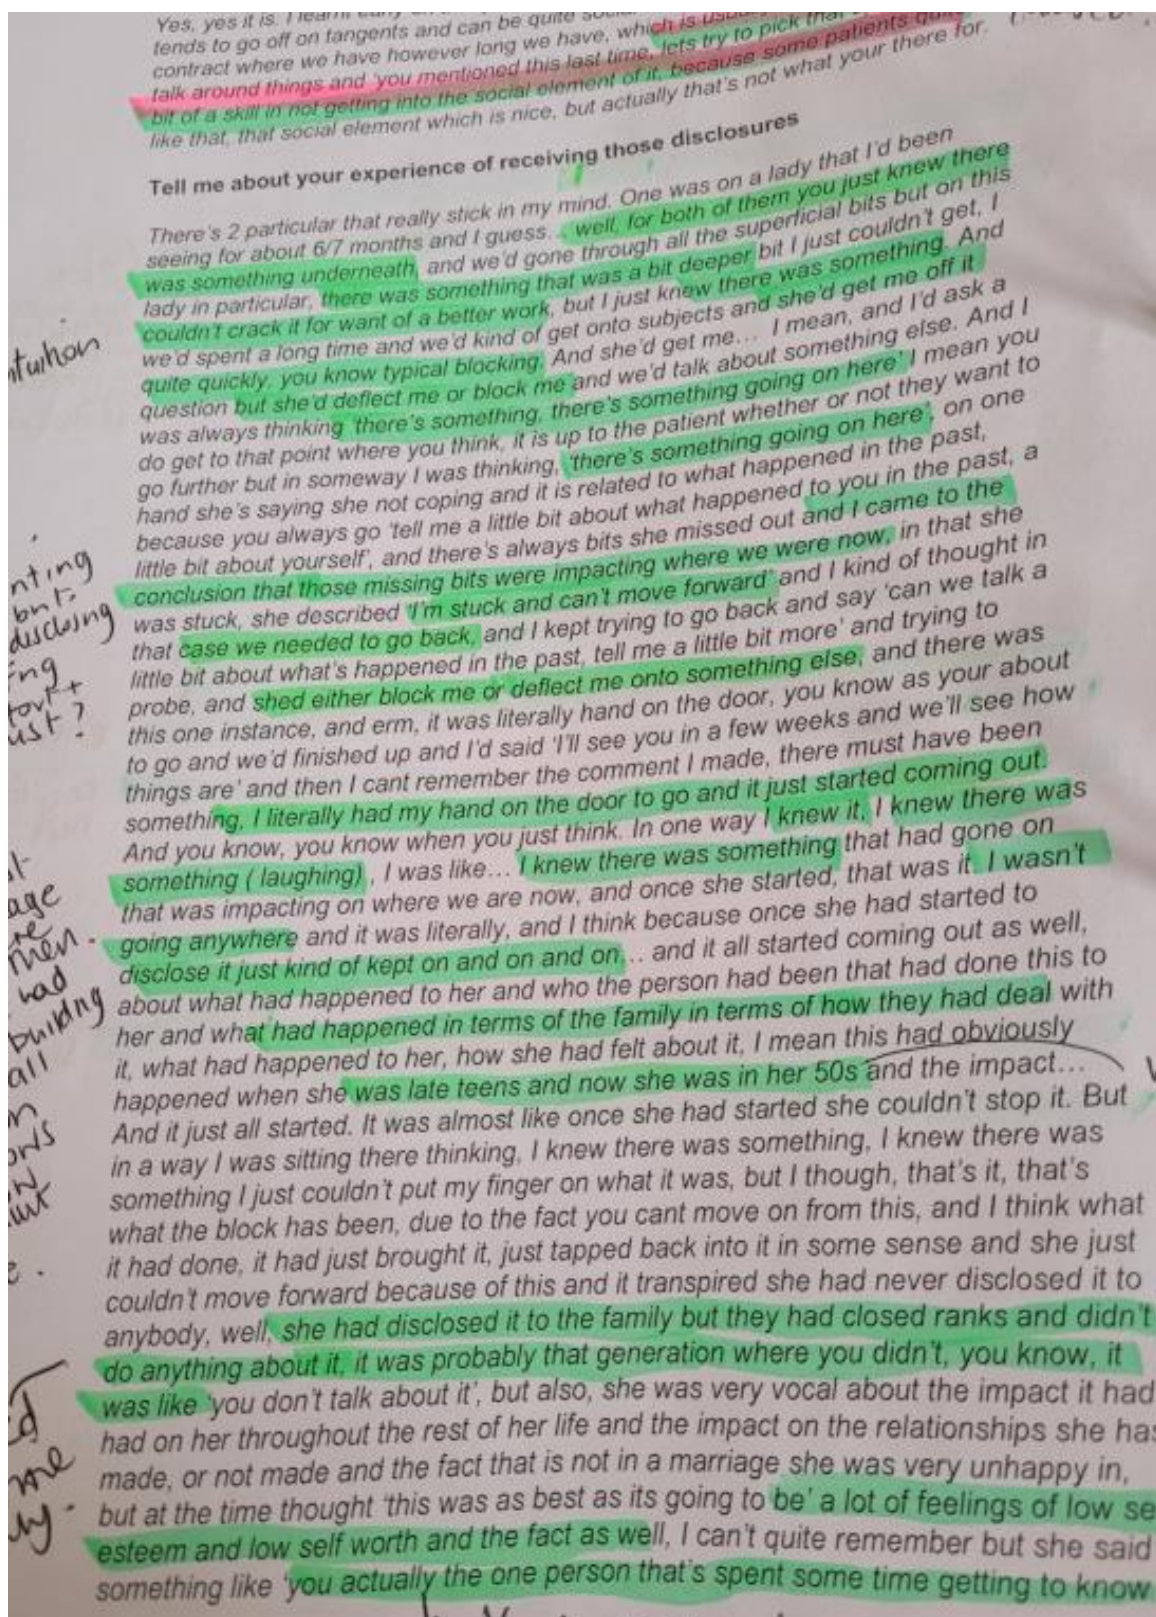 Yes, yes it is. I
tends to go off on tangents and can be quite
contract where we have however long we have, which is
talk around things and 'you mentioned this last time, lets try to pick that
bit of a skill in not getting into the social element of it, because some patients quite
like that, that social element which is nice, but actually that's not what your there for.
Tell me about your experience of receiving those disclosures
There's 2 particular that really stick in my mind. One was on a lady that I'd been
seeing for about 6/7 months and I guess... well, for both of them you just knew there
was something underneath, and we'd gone through all the superficial bits but on this
lady in particular, there was something that was a bit deeper bit I just couldn't get, I
couldn't crack it for want of a better work, but I just knew there was something. And
we'd spent a long time and we'd kind of get onto subjects and she'd get me off it
quite quickly, you know typical blocking. And she'd get me... I mean, and I'd ask a
question but she'd deflect me or block me and we'd talk about something else. And I
was always thinking 'there's something, there's something going on here' I mean you
do get to that point where you think, it is up to the patient whether or not they want to
go further but in someway I was thinking, 'there's something going on here', on one
hand she's saying she not coping and it is related to what happened in the past,
because you always go 'tell me a little bit about what happened to you in the past, a
little bit about yourself', and there's always bits she missed out and I came to the
conclusion that those missing bits were impacting where we were now, in that she
was stuck, she described 'I'm stuck and can't move forward' and I kind of thought in
that case we needed to go back, and I kept trying to go back and say 'can we talk a
little bit about what's happened in the past, tell me a little bit more' and trying to
probe, and shed either block me or deflect me onto something else, and there was
this one instance, and erm, it was literally hand on the door, you know as your about
to go and we'd finished up and I'd said 'I'll see you in a few weeks and we'll see how
things are' and then I cant remember the comment I made, there must have been
something, I literally had my hand on the door to go and it just started coming out.
And you know, you know when you just think. In one way I knew it, I knew there was
something ( laughing) , I was like... I knew there was something that had gone on
that was impacting on where we are now, and once she started, that was it. I wasn't
going anywhere and it was literally, and I think because once she had started to
disclose it just kind of kept on and on and on... and it all started coming out as well,
about what had happened to her and who the person had been that had done this to
her and what had happened in terms of the family in terms of how they had deal with
it, what had happened to her, how she had felt about it, I mean this had obviously
happened when she was late teens and now she was in her 50s and the impact...
And it just all started. It was almost like once she had started she couldn't stop it. But
in a way I was sitting there thinking, I knew there was something, I knew there was
something I just couldn't put my finger on what it was, but I though, that's it, that's
what the block has been, due to the fact you cant move on from this, and I think what
it had done, it had just brought it, just tapped back into it in some sense and she just
couldn't move forward because of this and it transpired she had never disclosed it to
anybody, well, she had disclosed it to the family but they had closed ranks and didn't
do anything about it, it was probably that generation where you didn't, you know, it
was like 'you don't talk about it', but also, she was very vocal about the impact it had
had on her throughout the rest of her life and the impact on the relationships she has
made, or not made and the fact that is not in a marriage she was very unhappy in,
but at the time thought 'this was as best as its going to be' a lot of feelings of low se
esteem and low self worth and the fact as well, I can't quite remember but she said
something like 'you actually the one person that's spent some time getting to know
disclosing
had
building
all